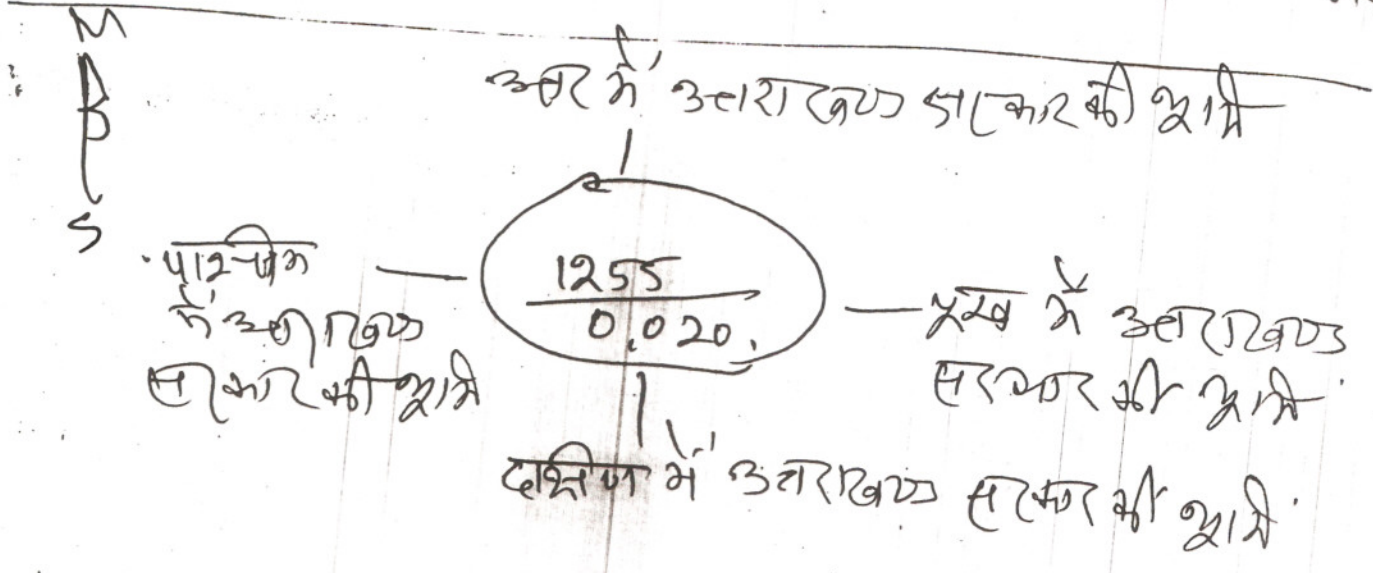 N
S
उत्तर में उत्तराखण्ड सरकार की भूमि
1255
0.020.
पश्चिम
में उत्तराखण्ड
सरकार की भूमि
पूरब में उत्तराखण्ड
सरकार की भूमि
दक्षिण में उत्तराखण्ड सरकार की भूमि